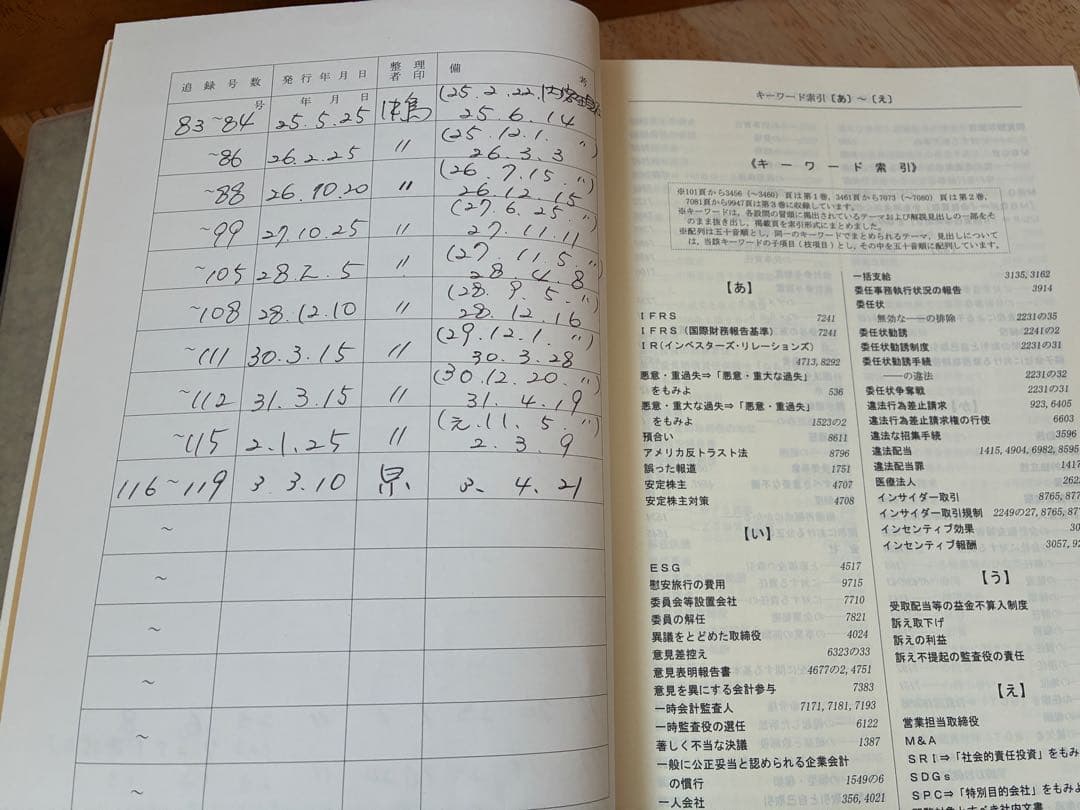 追録号数 発行年月日 整理者印 備考
号 年 月 日
83~84 25.5.25 津島 (25.2.22.内容
25.6.14
~86 26.2.25 〃 (25.12.1.〃)
26.3.3
~88 26.10.20 〃 (26.7.15.〃)
26.12.15
~99 27.10.25 〃 (27.6.25.〃)
27.11.11
~105 28.2.5 〃 (27.11.5.〃)
28.4.8
~108 28.12.10 〃 (28.9.5.〃)
28.12.16
~111 30.3.15 〃 (29.12.1.〃)
30.3.28
~112 31.3.15 〃 (30.12.20.〃)
31.4.19
~115 2.1.25 〃 (元.11.5.〃)
2.3.9
116~119 3.3.10 3.4.21
~
~
~
~
~
~
キーワード索引〔あ〕~〔え〕
《キーワード索引》
※101頁から3456(~3460)頁は第1巻,3461頁から7073(~7080)頁は第2巻,
7081頁から9947頁は第3巻に収録しています。
※キーワードは,各設問の冒頭に掲出されているテーマおよび解説見出しの一部をそ
のまま抜き出し,掲載頁を索引形式にまとめました。
※配列は五十音順とし,同一のキーワードでまとめられるテーマ,見出しについて
は,当該キーワードの子項目(枝項目)とし,その中を五十音順に配列しています。
【あ】
IFRS 7241
IFRS(国際財務報告基準) 7241
IR(インベスターズ・リレーションズ)
4713, 8292
悪意・重過失⇒「悪意・重大な過失」
をもみよ 536
悪意・重大な過失⇒「悪意・重過失」
もみよ 1523の2
預合い 8611
アメリカ反トラスト法 8796
誤った報道 1751
安定株主 4707
安定株主対策 4708
【い】
ESG 4517
慰安旅行の費用 9715
委員会等設置会社 7710
委員の解任 7821
異議をとどめた取締役 4024
意見差控え 6323の33
意見表明報告書 4677の2, 4751
意見を異にする会計参与 7383
一時会計監査人 7171, 7181, 7193
一時監査役の選任 6122
著しく不当な決議 1387
一般に公正妥当と認められる企業会計
の慣行 1549の6
一人会社 356, 4021
一括支給 3135, 3162
委任事務執行状況の報告 3914
委任状
無効な――の排除 2231の35
委任状勧誘 2241の2
委任状勧誘制度 2231の31
委任状勧誘手続
――の違法 2231の32
委任状争奪戦 2231の31
違法行為差止請求 923, 6405
違法行為差止請求権の行使 6603
違法な招集手続 3596
違法配当 1415, 4904, 6982, 8595
違法配当罪 1417
医療法人
インサイダー取引
インサイダー取引規制 2249の27, 8765,
インセンティブ効果
インセンティブ報酬 3057,
【う】
受取配当等の益金不算入制度
訴え取下げ
訴えの利益
訴え不提起の監査役の責任
【え】
営業担当取締役
M&A
SRI⇒「社会的責任投資」をもみ
SDGs
SPC⇒「特別目的会社」をもみよ